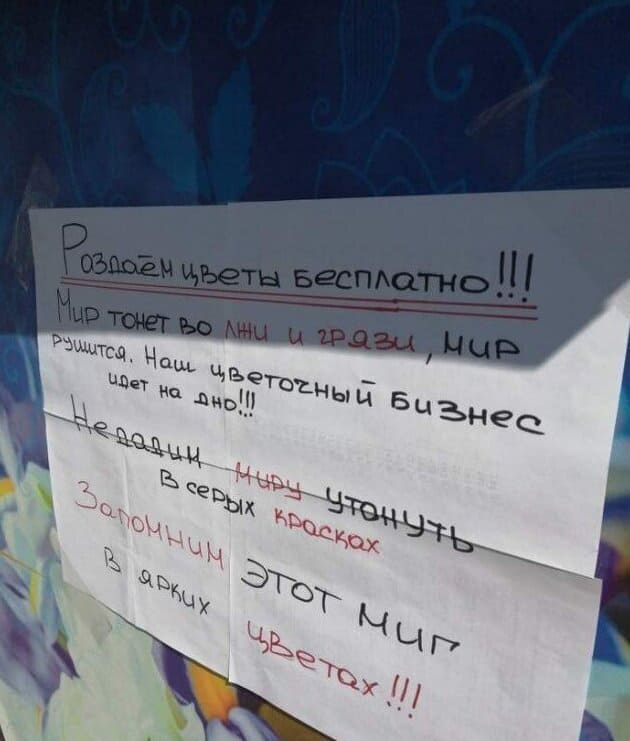 Раздаём цветы бесплатно!!!
Мир тонет во лжи и грязи, мир
рушится. Наш цветочный бизнес
идет на дно!!!
Недадим миру утонуть
в серых красках
Запомним этот миг
в ярких цветах!!!